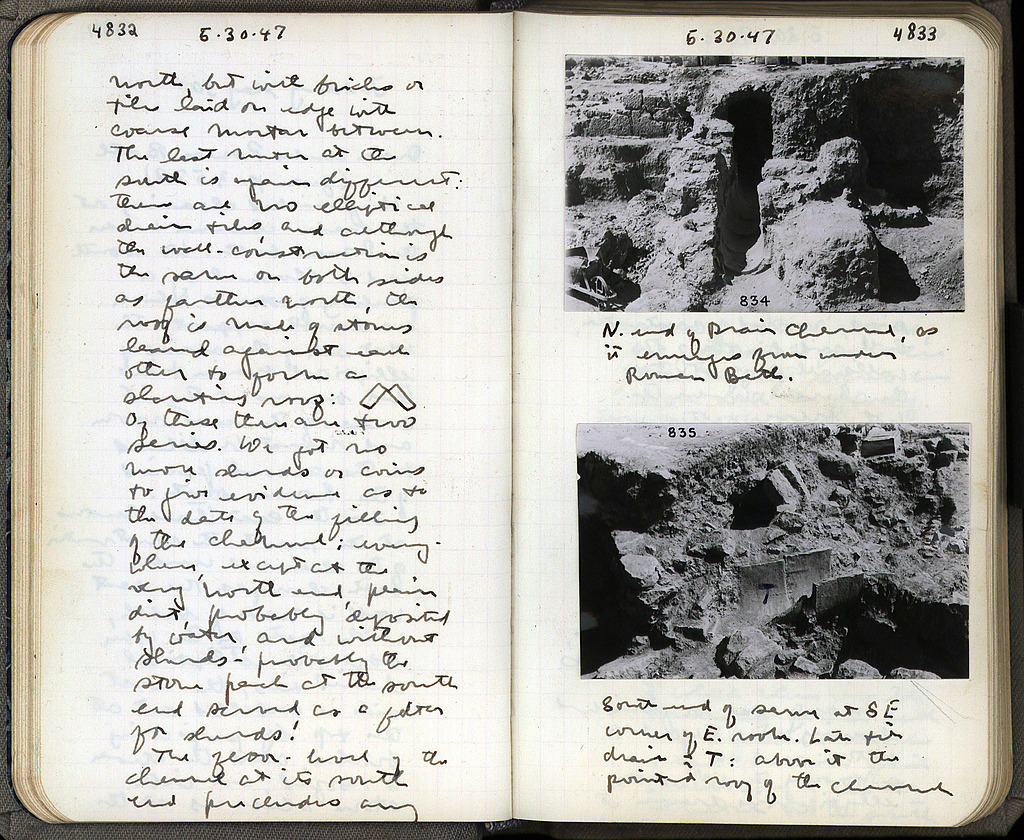 4832
5.30.47
north, but with bricks or
tiles laid on edge with
coarse mortar between.
The last meter at the
south is again different:
there are no elliptical
drain tiles and although
the wall-construction is
the same on both sides
as farther north, the
roof is made of stones
leaned against each
other to form a
slanting roof:
Of these there are two
series. We got no
more sherds or coins
to give evidence as to
the date of the filling
of the channel; every-
where except at the
very north end plain
dirt, probably deposited
by water and without
sherds: probably the
stone pack at the south
end served as a filter
for sherds!
The floor-level of the
channel at its south
end precludes any
5.30.47
4833
834
N. end of Drain Channel, as
it emerges from under
Roman Bath.
835
T
South end of same at SE
corner of E. room. Late tile
drain = T: above it the
pointed roof of the channel